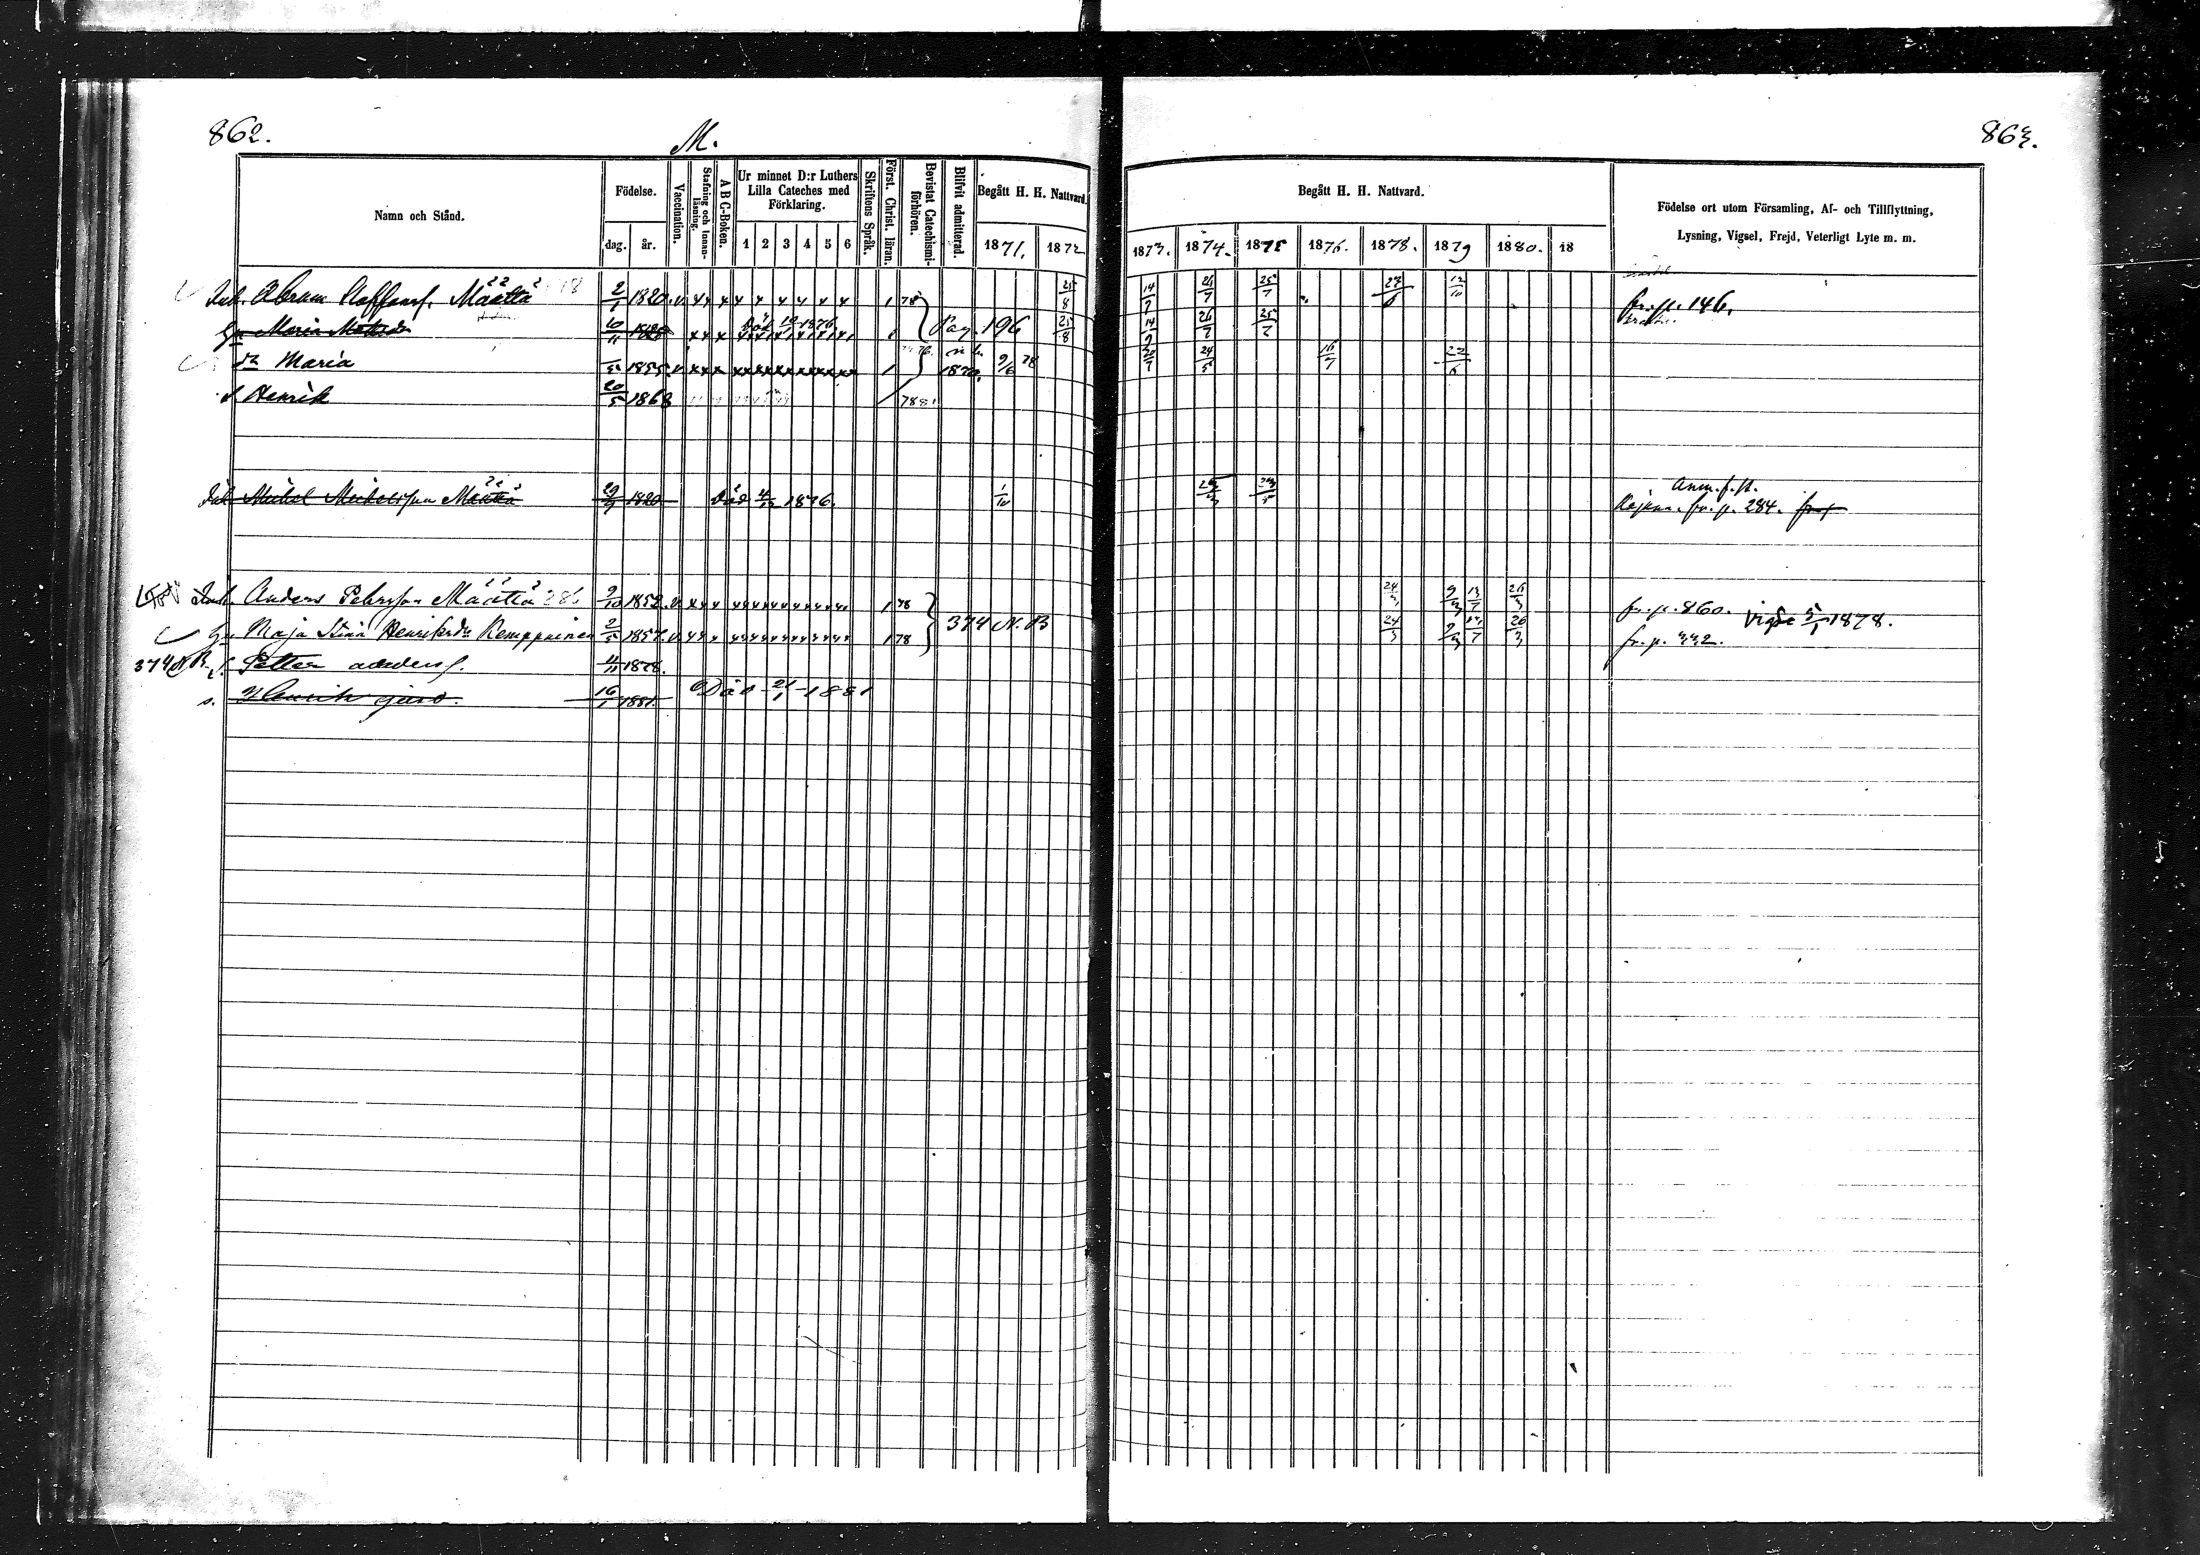 862.
M.
863.
Namn och Stånd.
Födelse.
dag. år.
Vaccination.
Stafning och Innanläsning.
A B C-Boken.
Ur minnet D:r Luthers Lilla Cateches med Förklaring.
1 2 3 4 5 6
Skriftens Språk.
Först. Christ. läran.
Bevistat Catechismiförhören.
Blifvit admitterad.
Begått H. H. Nattvard.
1871. 1872
Begått H. H. Nattvard.
1873. 1874. 1875 1876. 1878. 1879 1880. 18
Födelse ort utom Församling, Af- och Tillflyttning,
Lysning, Vigsel, Frejd, Veterligt Lyte m. m.
Inh. Abram Staffansf. Määttä 2/1 1820. v x x x x x x x x x 1 78 25/8 14/7 26/7 25/7 12/10 fr. p. 146.
Hu Maria 10/11 1828 x x x Död 1876 Pag. 196 25/8 14/9 26/7 25/7
dr Maria 1855. v x x x 1 9/6 78 24/5 16/7 22/6
s. Henrik 20/5 1868 78
Inh. Mickel Mickelsson Määttä 29/9 1820 Död 4/12 1876. 1/10 Anm. f. st.
fr. p. 284.
Inh. Anders Pehrsson Määttä 286 9/10 1852. v x x x 1 78 374 N. B 24/3 9/3 13/7 26/3 fr. p. 860. Vigde 5/1 1878.
Hu Maja Stina Henriksdr Kemppainen 2/5 1857. v x x x 1 78 24/3 9/3 13/7 26/3 fr. p. 332.
374 N. B. s. Petter Andersf. 4/11 1878.
s. Henrik 16/1 1881. Död 21/1 1881